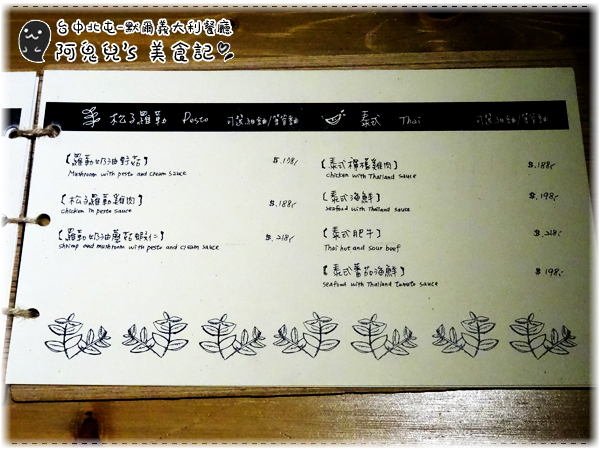 台中北屯-默爾義大利餐廳
阿兔兒's 美食記
松子羅勒 Pesto 可選細麵/筆管麵
【羅勒奶油野菇】 $.198.-
Mushroom with pesto and cream sauce
【松子羅勒雞肉】 $.188.-
chicken in pesto sauce
【羅勒奶油蘑菇蝦仁】 $.218.-
shrimp and mushroom with pesto and cream sauce
泰式 Thai 可選細麵/筆管麵
【泰式檸檬雞肉】 $.188.-
chicken with Thailand sauce
【泰式海鮮】 $.198.-
seafood with Thailand sauce
【泰式肥牛】 $.218.-
Thai hot and sour beef
【泰式蕃茄海鮮】 $.198.-
seafood with Thailand tomato sauce